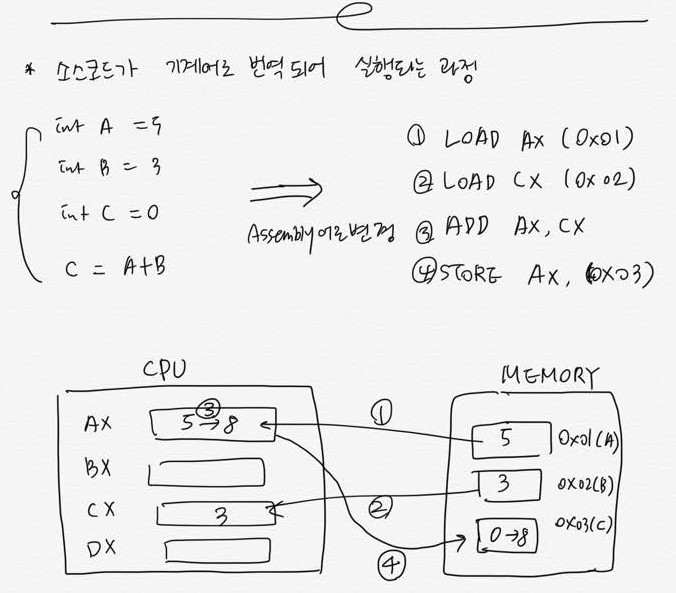 * 소스코드가 기계어로 번역되어 실행되는 과정
int A = 5
int B = 3
int C = 0
C = A+B
Assembly어로변경
① LOAD AX (0x01)
② LOAD CX (0x02)
③ ADD AX, CX
④ STORE AX, (0x03)
CPU
AX 5→8 ③
BX
CX 3
DX
①
②
④
MEMORY
5 0x01(A)
3 0x02(B)
0→8 0x03(C)